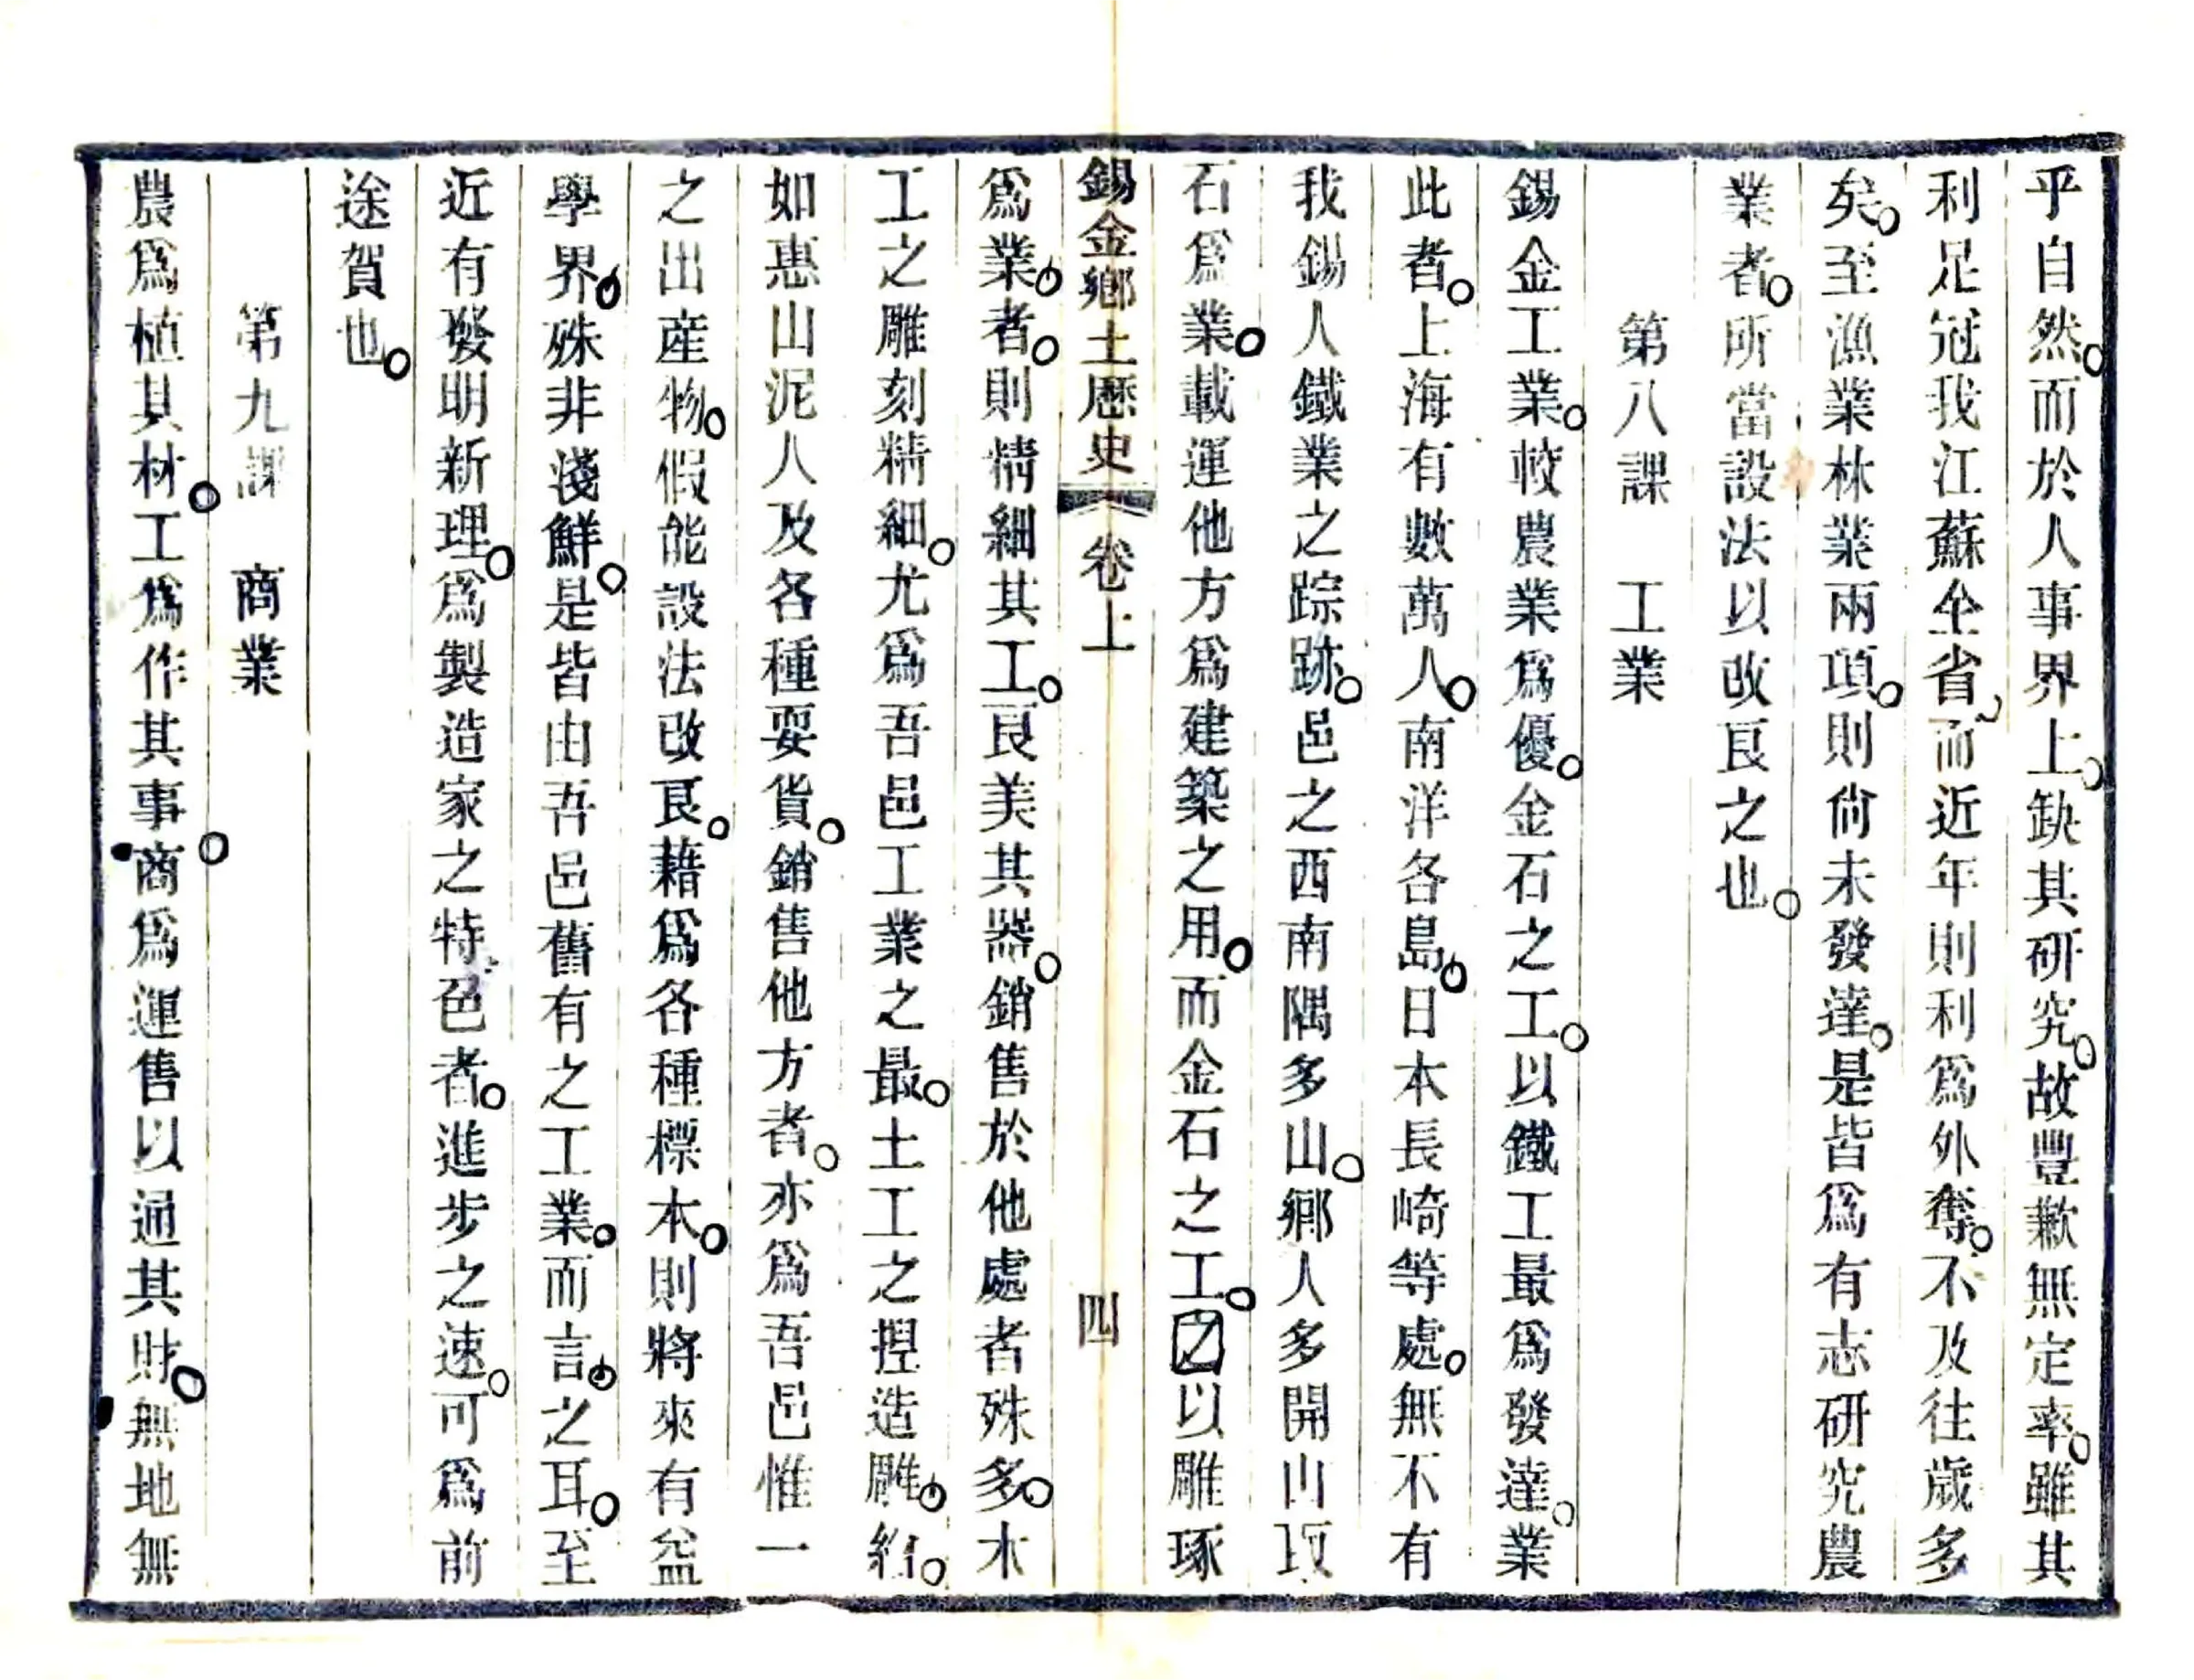 乎自然。而於人事界上。缺其研究。故豐歉無定率。雖其
利足冠我江蘇全省、而近年則利爲外奪。不及往歲多
矣。至漁業林業兩項。則尙未發達。是皆爲有志研究農
業者。所當設法以改良之也。
第八課　工業
錫金工業。較農業爲優。金石之工。以鐵工最爲發達。業
此者。上海有數萬人。南洋各島。日本長崎等處。無不有
我錫人鐵業之踪跡。邑之西南隅多山。鄉人多開山取
石爲業。載運他方爲建築之用。而金石之工。之以雕琢
錫金鄉土歷史　卷上　四
爲業者。則精細其工。良美其器。銷售於他處者殊多。木
工之雕刻精細。尤爲吾邑工業之最。土工之捏造雕。
如惠山泥人及各種耍貨。銷售他方者。亦爲吾邑惟一
之出産物。假能設法改良。藉爲各種標本。則將來有益
學界。殊非淺鮮。是皆由吾邑舊有之工業。而言。之耳。至
近有發明新理。爲製造家之特色者。進步之速。可爲前
途賀也。
第九課　商業
農爲植其材。工爲作其事。商爲運售以通其財。無地無